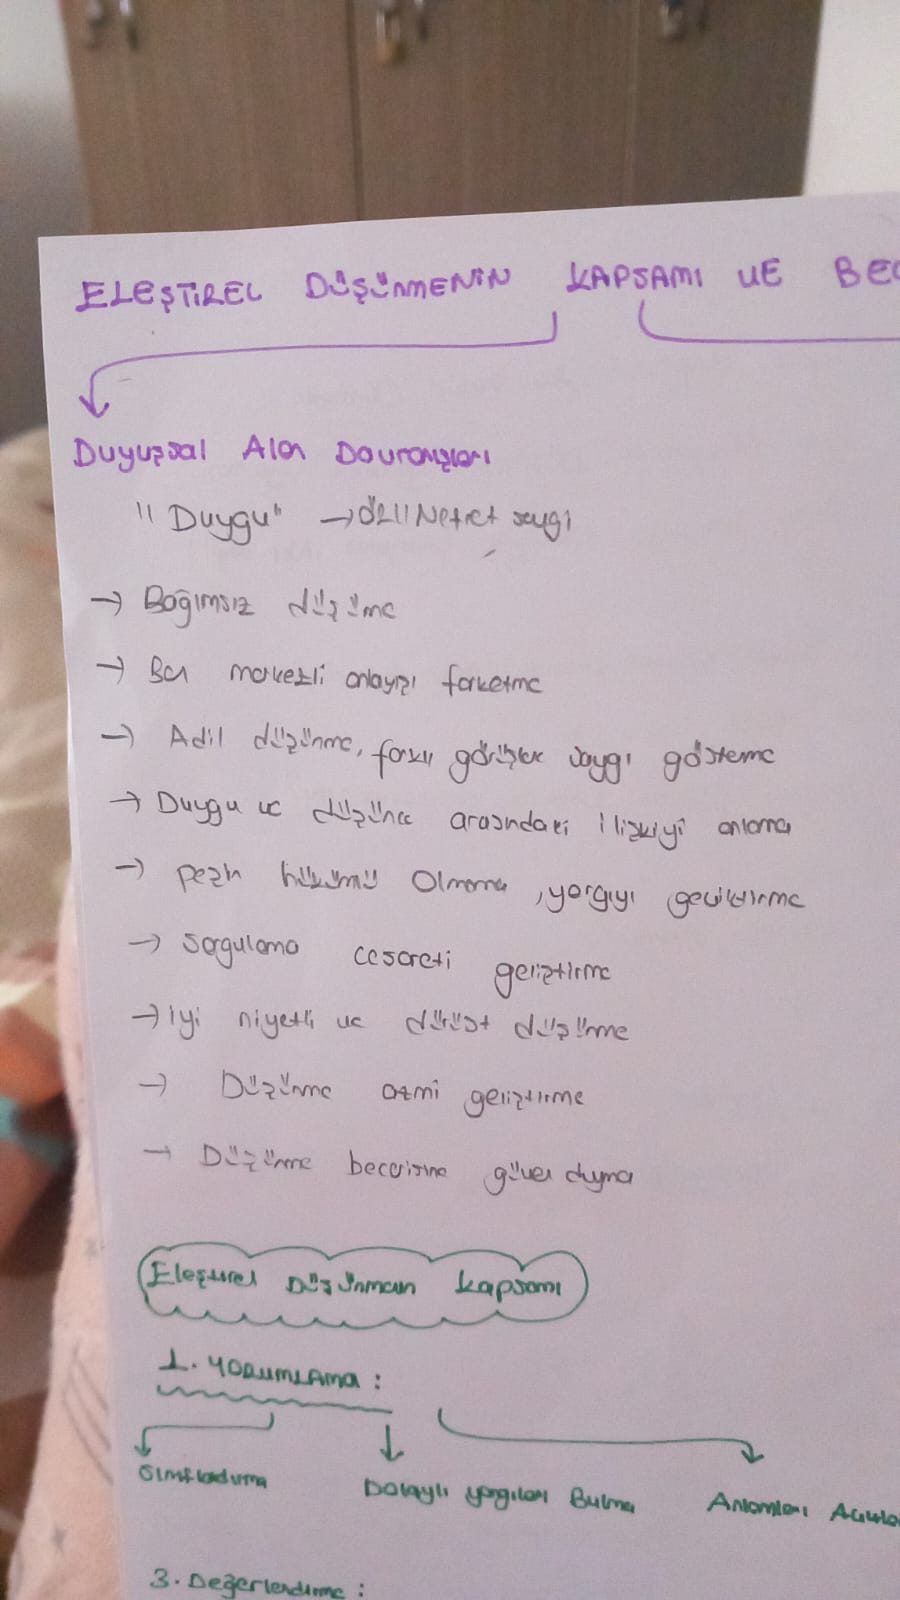 ELEŞTİREL DÜŞÜNMENİN KAPSAMI VE BEC
Duyuşsal Alan Davranışları
"Duygu" → Nefret sevgi
→ Bağımsız düşünme
→ Ben merkezli anlayışı farketme
→ Adil düşünme, farklı görüşlere saygı gösterme
→ Duygu ve düşünce arasındaki ilişkiyi anlama
→ peşin hükümlü Olmama, yargıyı geciktirme
→ Sorgulama cesareti geliştirme
→ iyi niyetli ve dürüst düşünme
→ Düşünme azmi geliştirme
→ Düşünme becerisine güven duyma
Eleştirel Düşünmenin Kapsamı
1. YORUMLAMA:
Sınıflandırma Dolaylı yargıları Bulma Anlamları Açıkla
3. Değerlendirme: